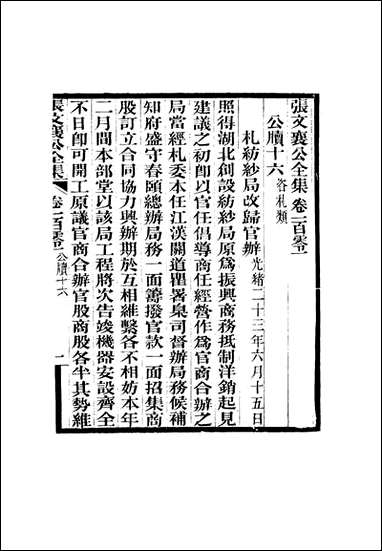 張文襄公全集卷一百零一
公牘十六 咨札類
札紡紗局改歸官辦光緒二十三年六月十五日
照得湖北創設紡紗局原爲振興商務抵制洋銷起見
建議之初卽以官任倡導商任經營作爲官商合辦之
局當經札委本任江漢關道瞿署臬司督辦局務候補
知府盛守春頤總辦局務一面籌撥官款一面招集商
股訂立合同協力興辦期於互相維繫各不相妨本年
二月間本部堂以該局工程將次告竣機器安設齊全
不日卽可開工原議官商合辦官股商股各半其勢維
張文襄公全集 卷一百零一 公牘十六 一